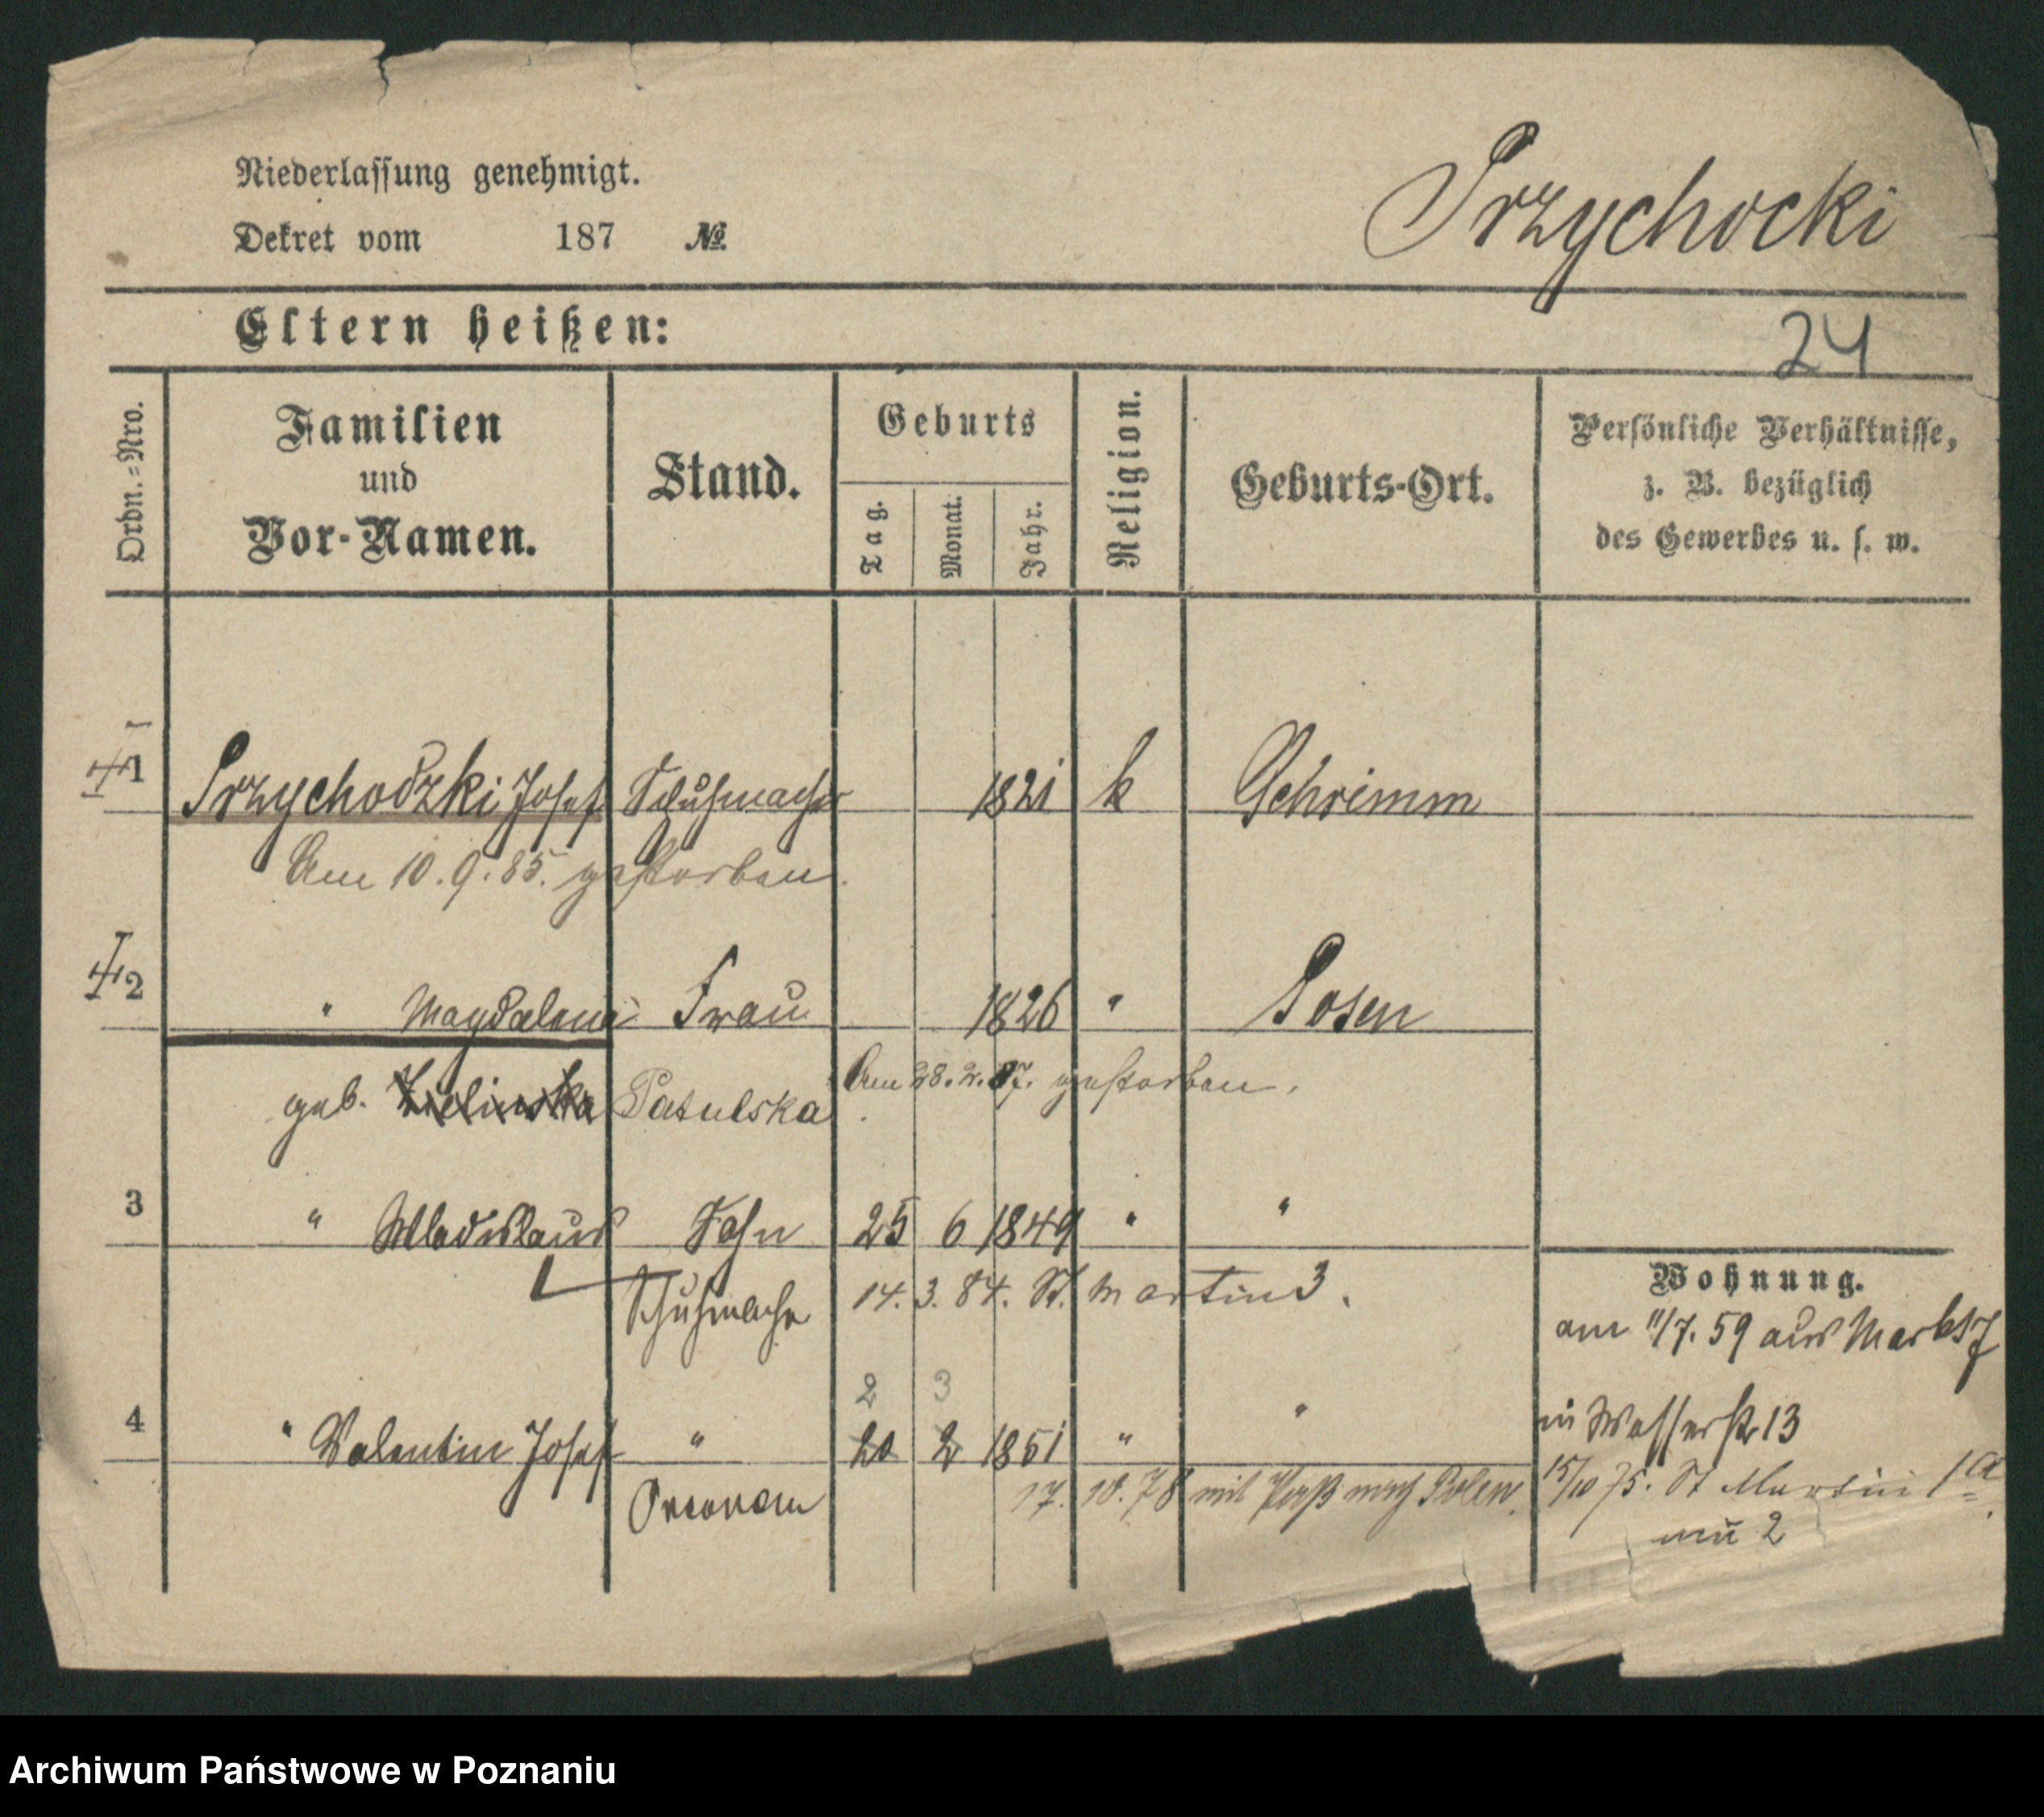 Niederlassung genehmigt.
Dekret vom 187 №
Przychocki
Eltern heißen:
24
Ordn.=Nro.
Familien
und
Vor-Namen.
Stand.
Geburts
Tag.
Monat.
Jahr.
Religion.
Geburts-Ort.
Persönliche Verhältnisse,
z. B. bezüglich
des Gewerbes u. s. w.
1 Przychodzki Josef Schuhmacher 1821 k Schrimm
Am 10.9.85. gestorben.
2 " Magdalena Frau 1826 " Posen
geb. Zielinska Patulska Am 28.2.87. gestorben.
3 " Wladislaus Sohn 25 6 1849 " "
Schuhmacher 14.3.84. St. Martin 3.
Wohnung.
am 11/7. 59 aus Markt 7
2 3
4 " Valentin Josef " 20 2 1851 " "
in Wasserstr 13
Oeconom 17. 10. 78 mit Paß nach Polen.
15/10 75. St Martin 1a
2
Archiwum Państwowe w Poznaniu